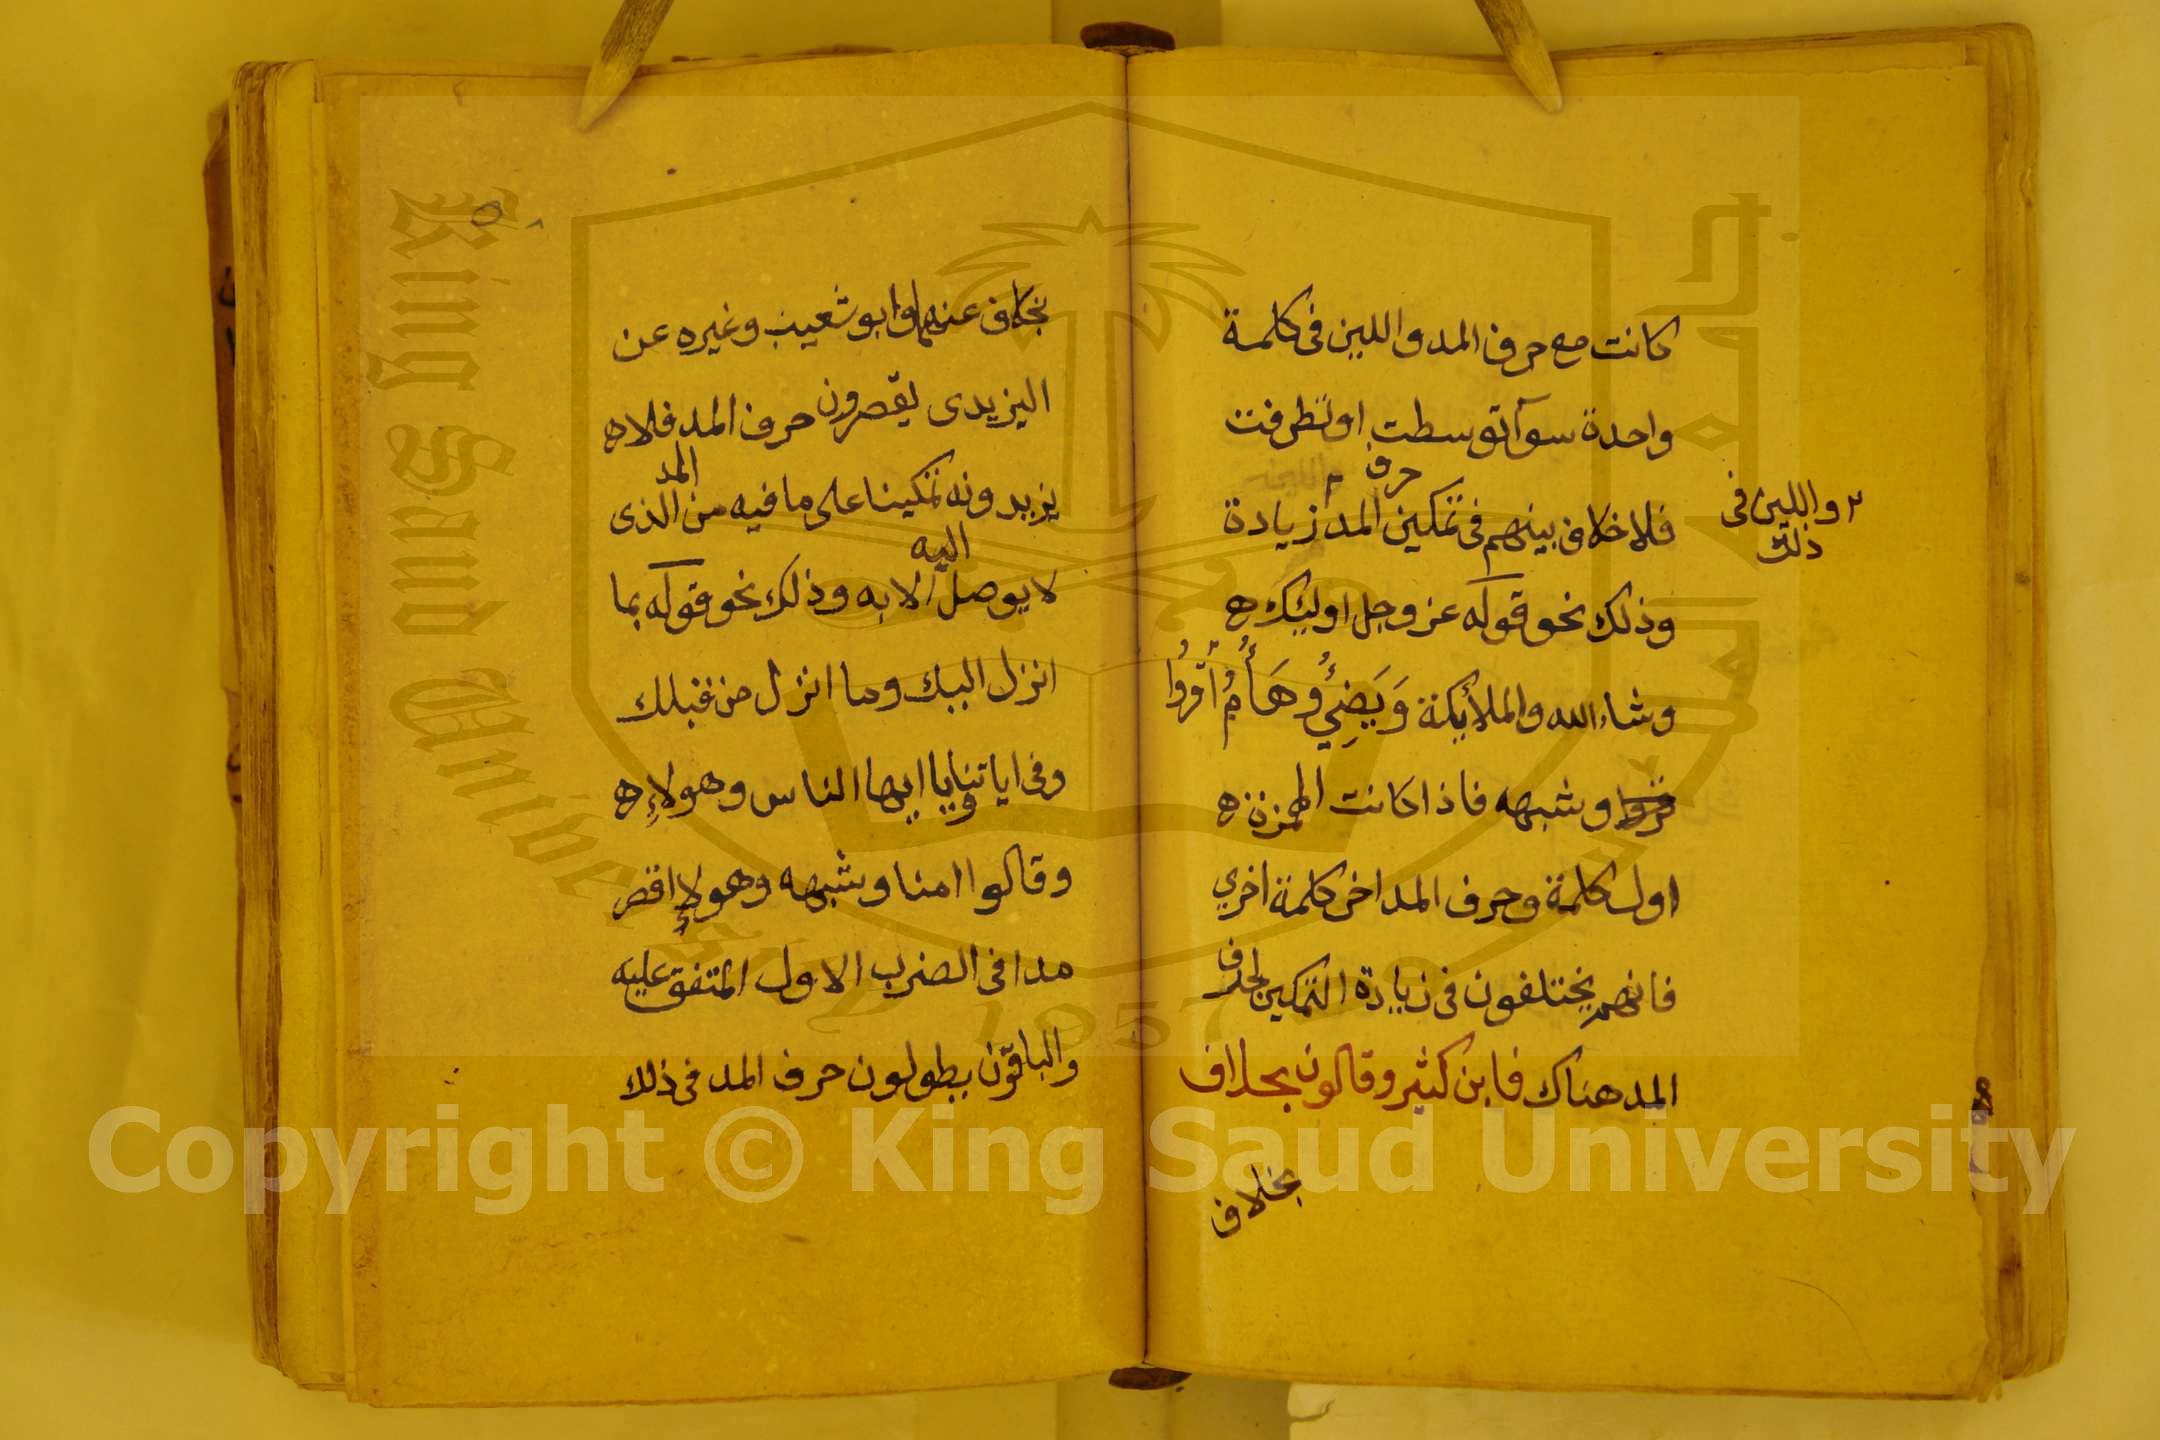 كانت مع حرف المد واللين فى كلمة
واحدة سوآ توسطت او تطرفت
حرف
فلا خلاف بينهم فى تمكين المد زيادة
٢ واللين فى
ذلك
وذلك نحو قوله عز وجل اوليك ه
وشاء الله والملأيكة وَيَضِئُ وهَأُمُ اقرؤُا
وشبهه فاذا كانت الهمزة ه
اول كلمة وحرف المد اخر كلمة اخري
فانهم يختلفون فى زيادة التمكين لحرف
المد هناك فابن كثير وقالون بخلاف
بخلاف
بخلاف عنهما وابو شعيب وغيره عن
اليزيدى يقصرون حرف المد فلا ه
المد
يزيدونه تمكينا على ما فيه من الذى
اليه
لا يوصل الا به وذلك نحو قوله بما
انزل اليك وما انزل من قبلك
وفى اياتنا ويا ايها الناس وهولاء ه
وقالوا امنا وشبهه وهولاء اقصر
مدا فى الضرب الاول المتفق عليه
والباقون يطولون حرف المد فى ذلك
King Saud University
جامعة الملك سعود
1957
Copyright © King Saud University